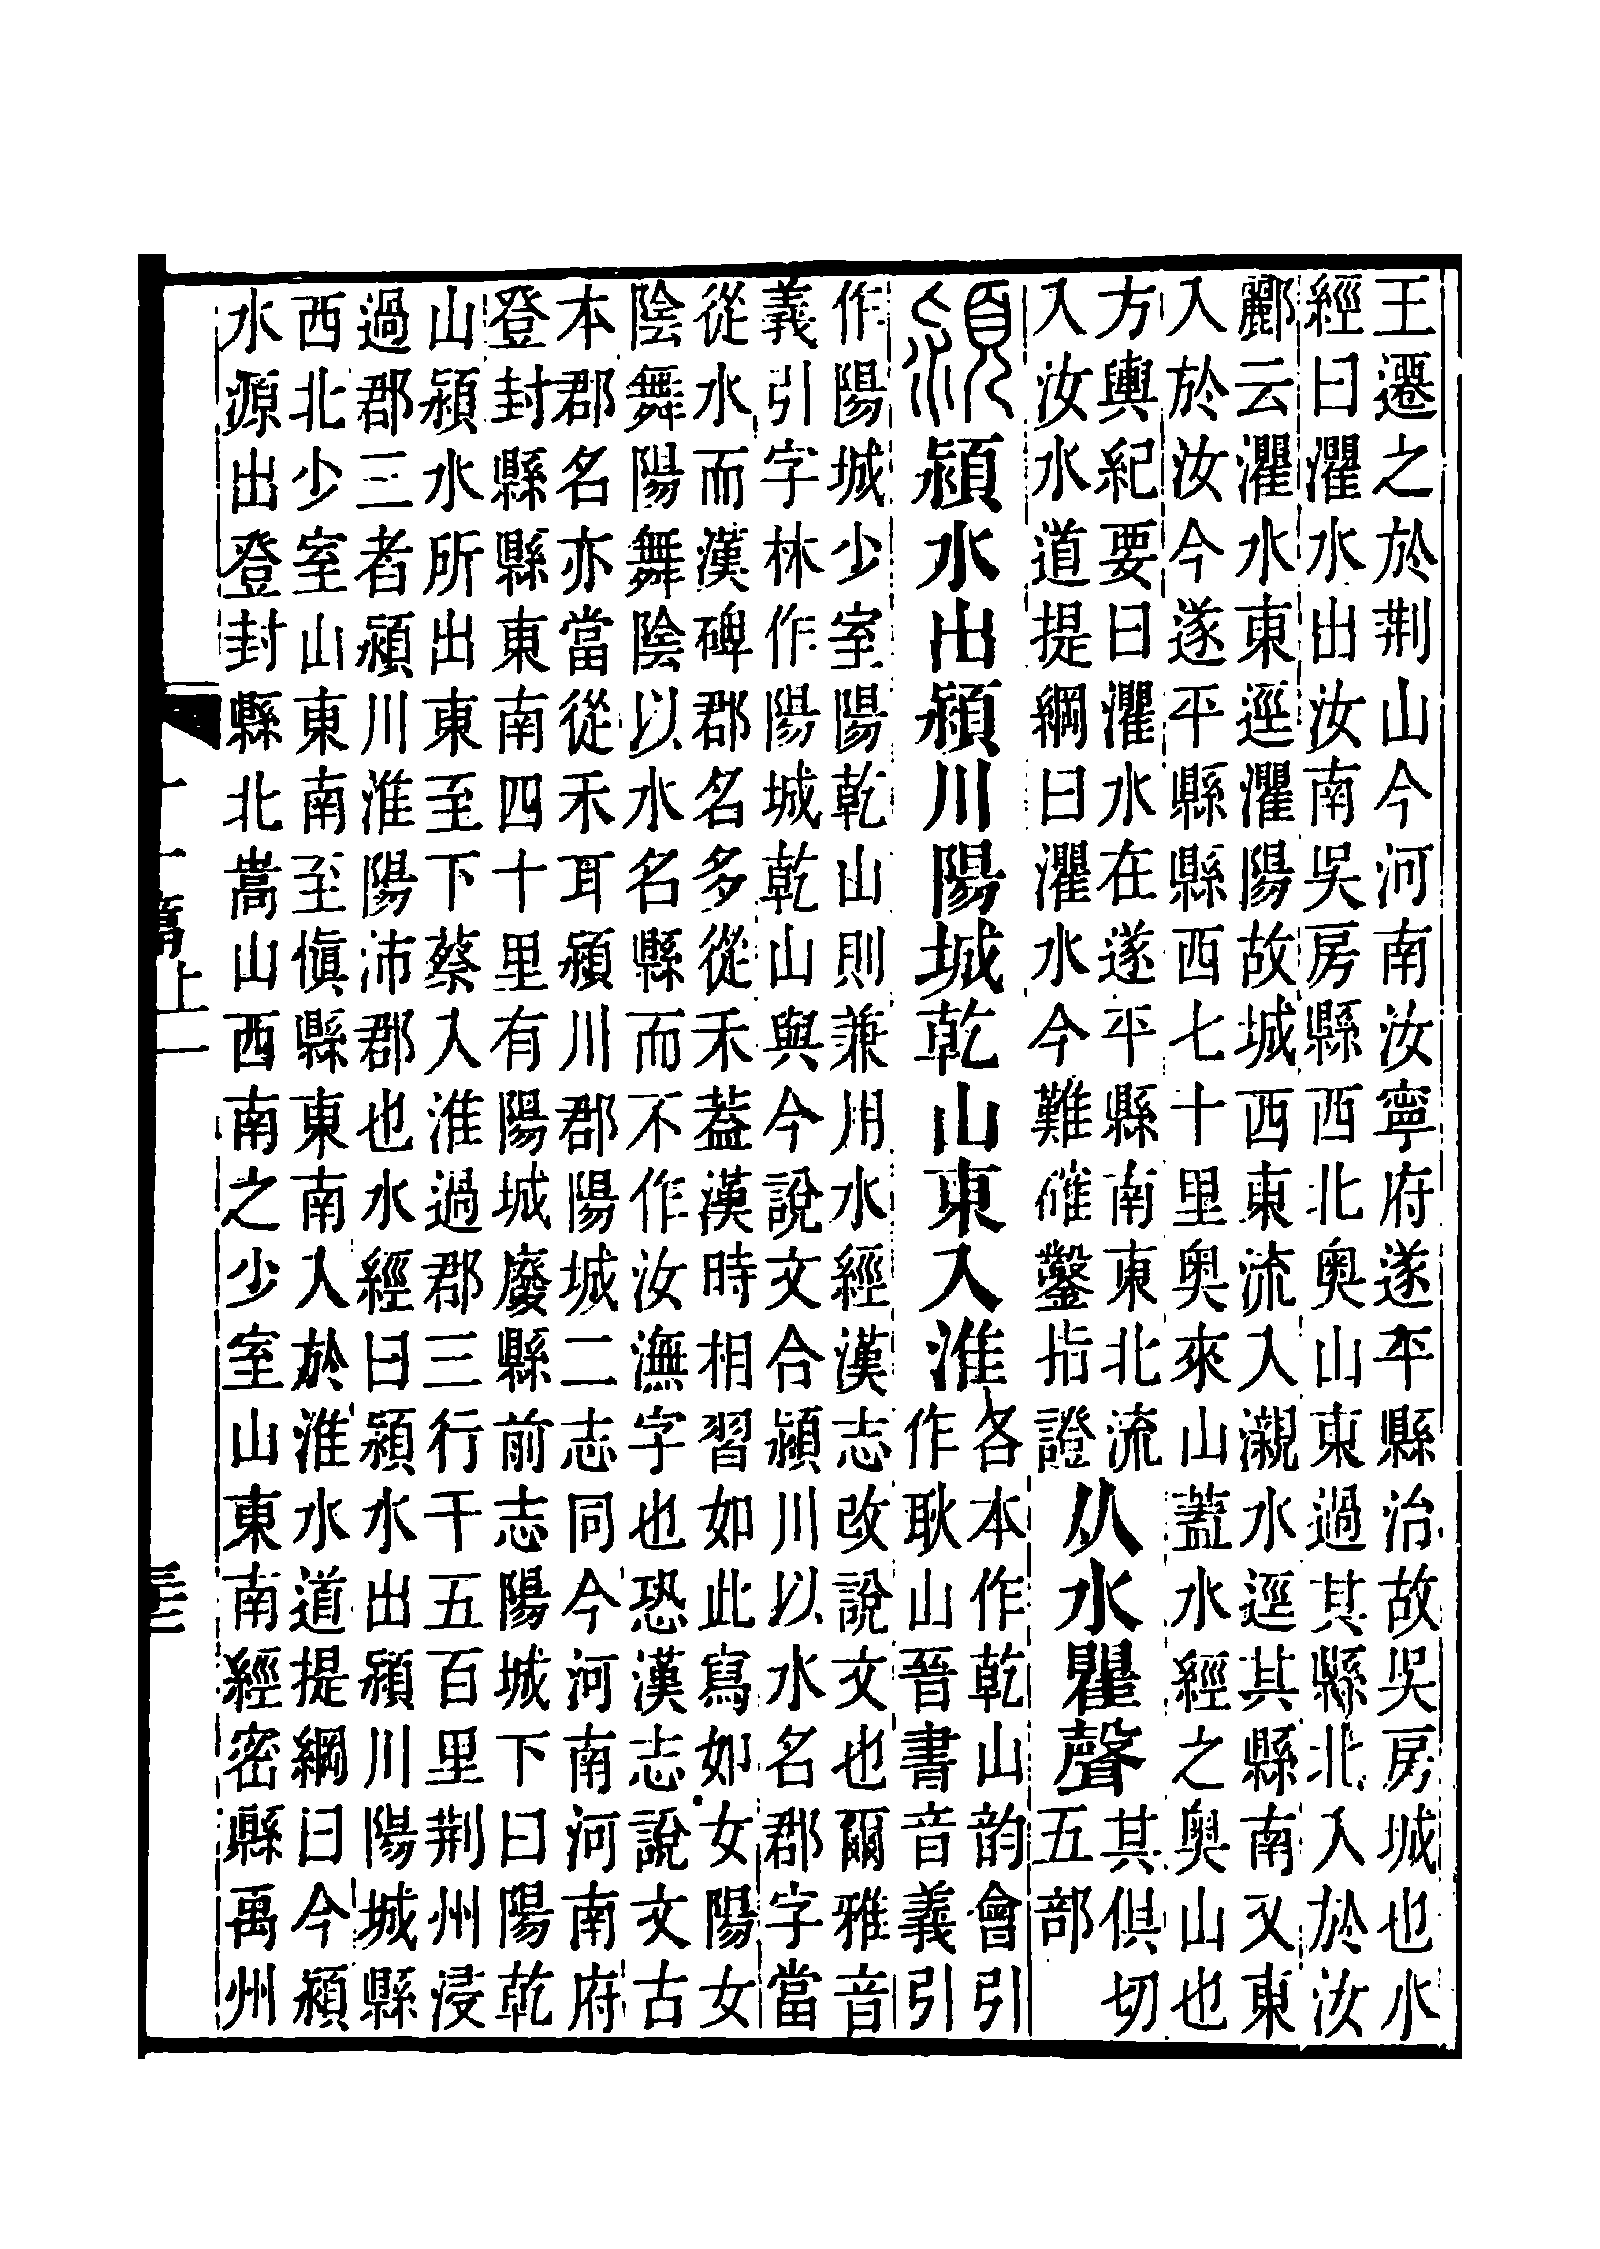 王遷之於荆山今河南汝寧府遂平縣治故吳房城也水
經曰灈水出汝南吳房縣西北奧山東過其縣北入於汝
酈云灈水東逕灈陽故城西東流入瀙水逕其縣南又東
入於汝今遂平縣縣西七十里奧來山蓋水經之奧山也
方輿紀要曰灈水在遂平縣南東北流
入汝水道提綱曰灈水今難確鑿指證
从水瞿聲
其俱切
五部
潁
潁水出潁川陽城乾山東入淮
各本作乾山韵會引
作耿山晉書音義引
作陽城少室陽乾山則兼用水經漢志改說文也爾雅音
義引字林作陽城乾山與今說文合潁川以水名郡字當
從水而漢碑郡名多從禾蓋漢時相習如此寫如女陽女
陰舞陽舞陰以水名縣而不作汝潕字也恐漢志說文古
本郡名亦當從禾耳潁川郡陽城二志同今河南河南府
登封縣縣東南四十里有陽城廢縣前志陽城下曰陽乾
山潁水所出東至下蔡入淮過郡三行千五百里荆州浸
過郡三者潁川淮陽沛郡也水經曰潁水出潁川陽城縣
西北少室山東南至愼縣東南入於淮水道提綱曰今潁
水源出登封縣北嵩山西南之少室山東南經密縣禹州
十一篇上一